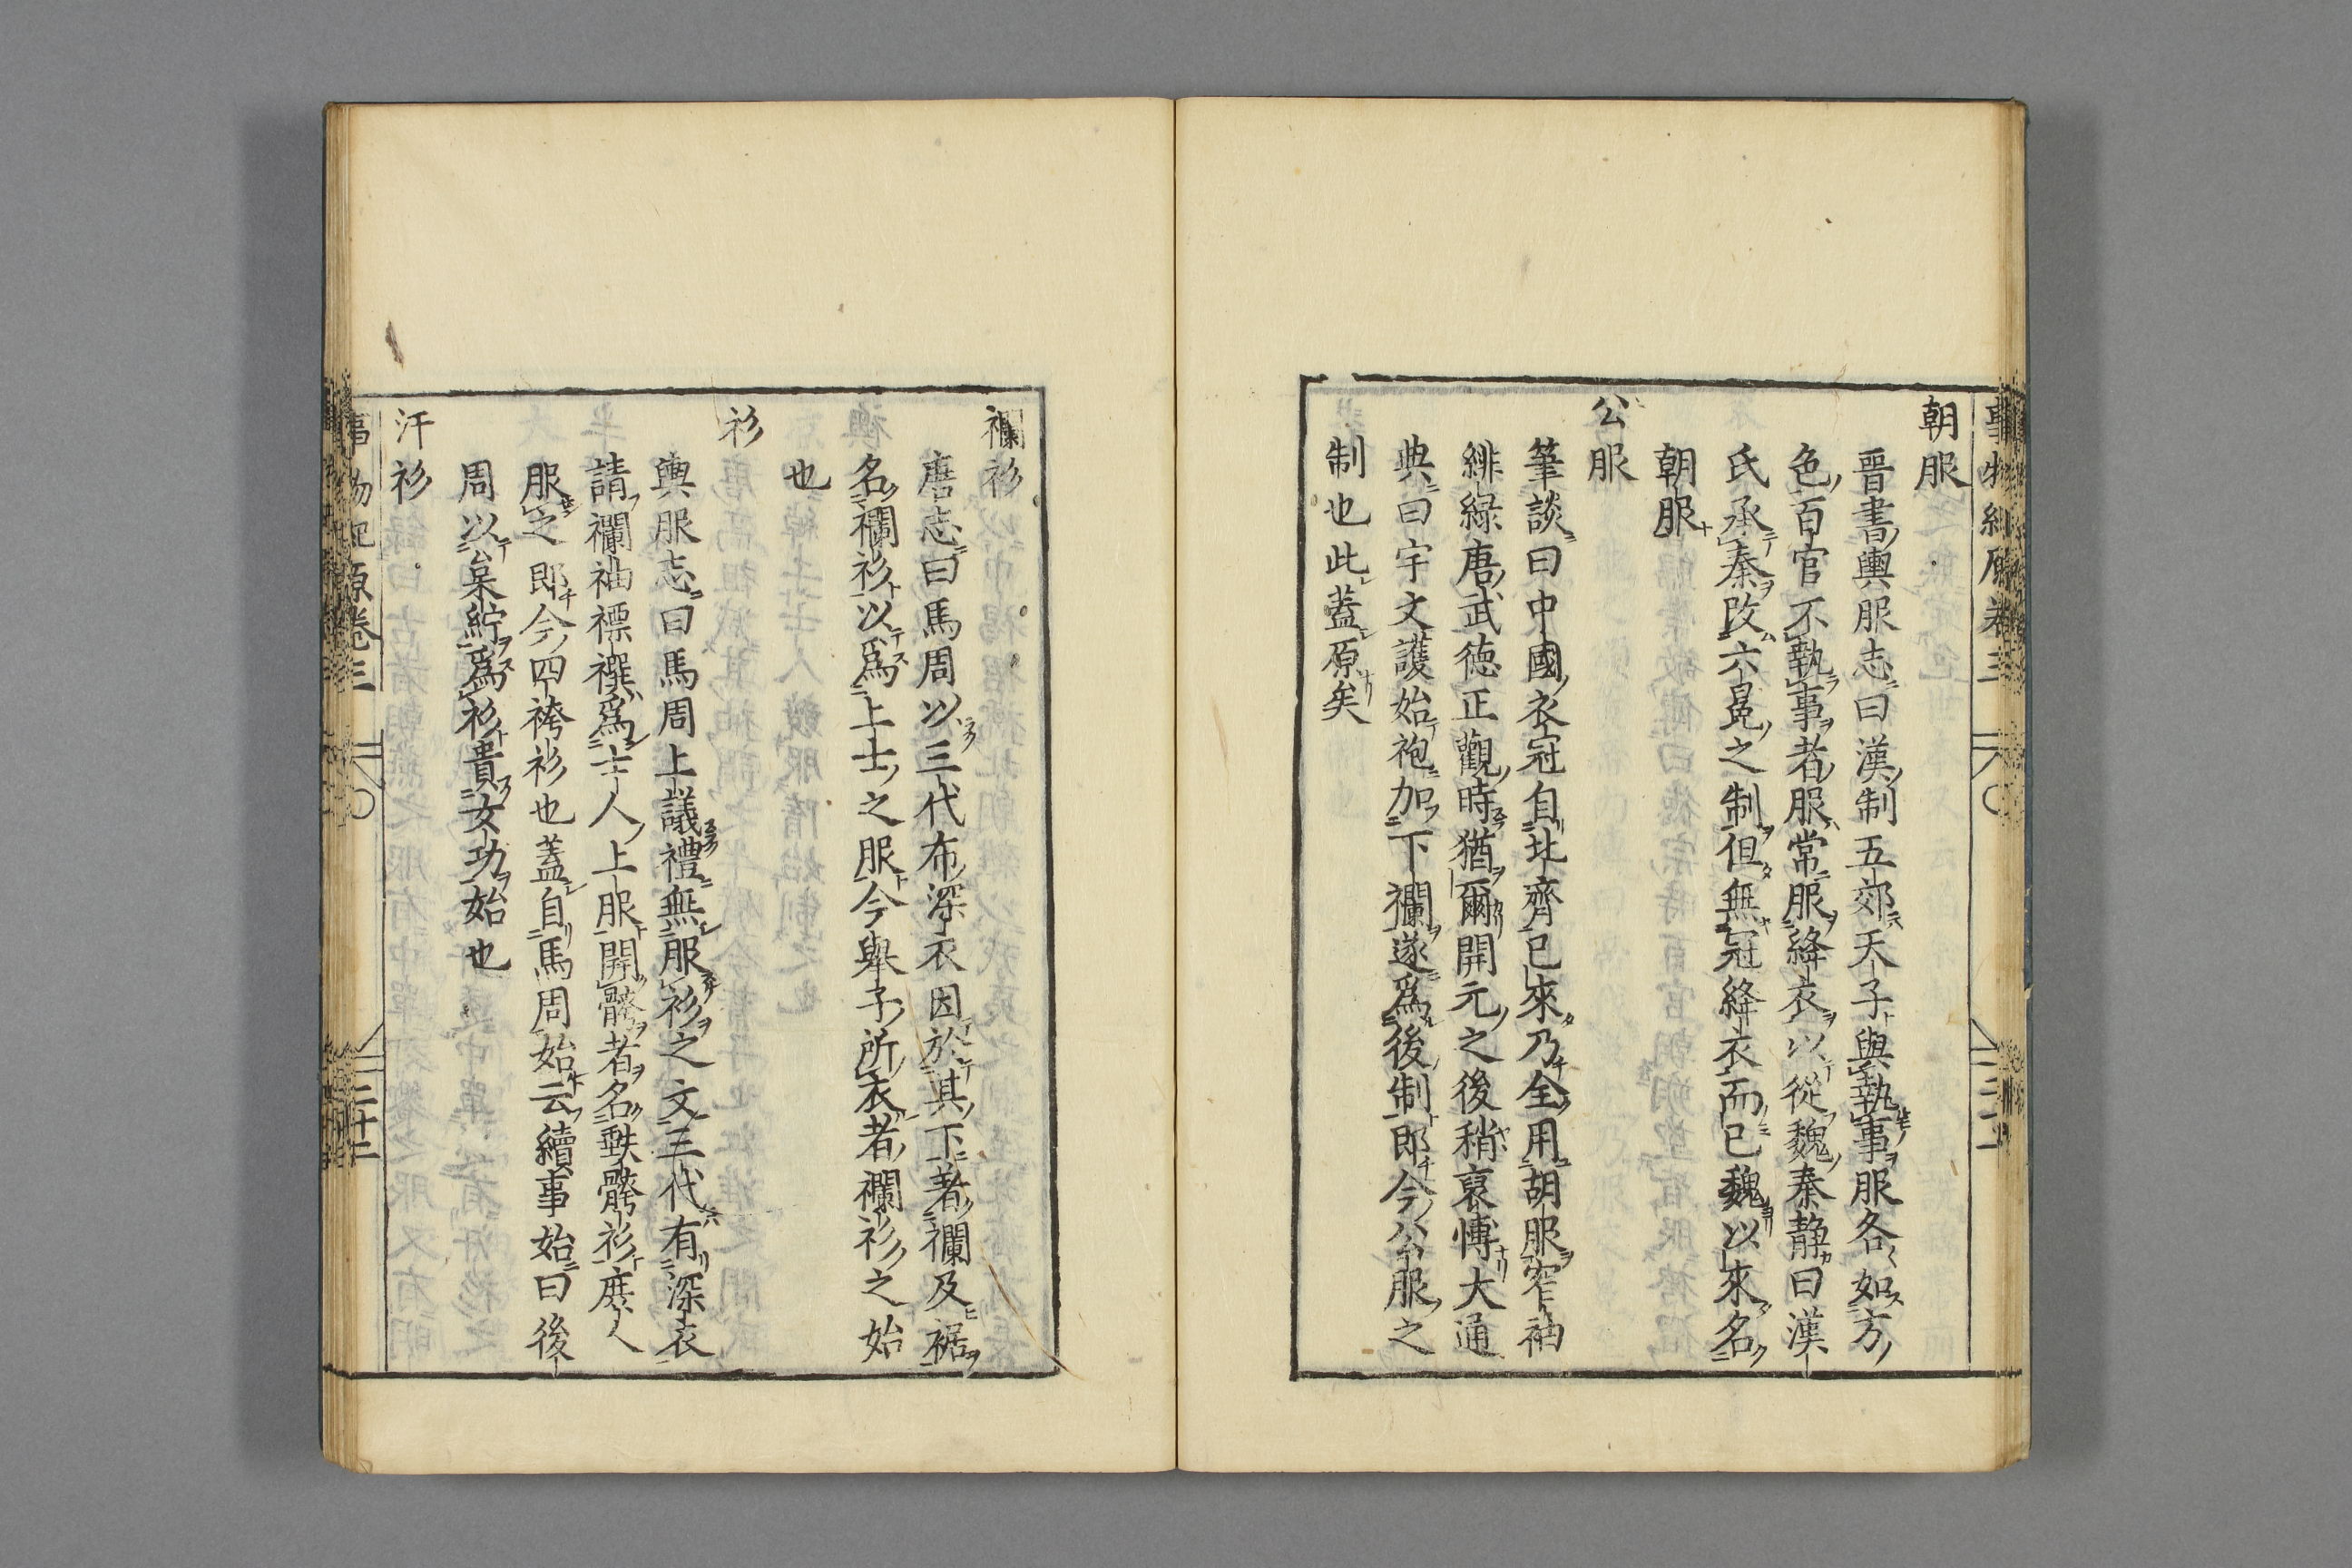 朝服
晋書輿服志曰漢制五郊天子與執事服各如方
色百官不執事者服常服絳衣以從魏秦静曰漢
氏承秦改六冕之制但無冠絳衣而已魏以來名
朝服
公服
筆談曰中國衣冠自北齊已來乃全用胡服窄袖
緋綠唐武徳正觀時猶爾開元之後稍裒愽大通
典曰宇文護始袍加下襴遂爲後制即今公服之
制也此蓋原矣
襴衫
唐志曰馬周以三代布深衣因於其下著襴及裾
名襴衫以爲上士之服今舉子所衣者襴衫之始
也
衫
輿服志曰馬周上議禮無服衫之文三代有深衣
請襴袖褾襈爲士人上服開骻者名缺骻衫庶人
服之即今四袴衫也蓋自馬周始云續事始曰後
周以枲紵爲衫貴女功始也
汗衫
事物紀原卷三 二十二